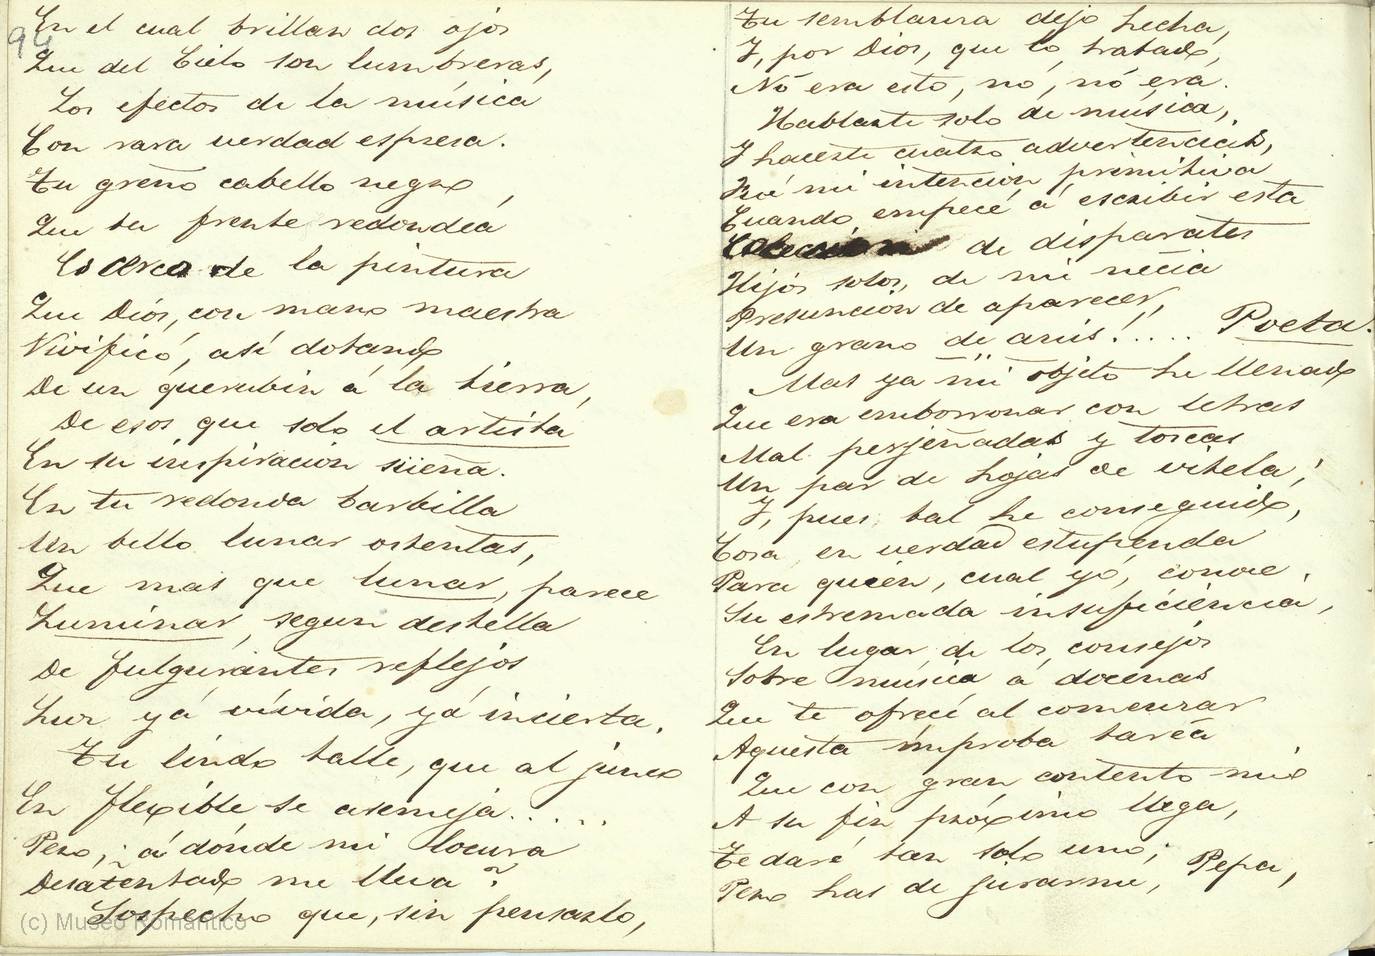 94
En el cual brillan dos ojos
Que del Cielo son lumbreras,
Los efectos de la música
Con rara verdad espresa.
Tu greño cabello negro,
Que tu frente redondéa
Es arco de la pintura
Que Diós, con mano maestra
Vivificó, así dotando
De un querubin á la tierra,
De esos que solo el artista
En su inspiracion sueña.
En tu redonda barbilla
Un bello lunar ostentas,
Que mas que lunar, parece
Luminar, segun destella
De fulgurantes reflejos
Luz yá vívida, yá incierta.
Tu lindo talle, que al junco
En flexible se asemeja.....
Pero, ¿á dónde mi locura
Desatentado me lleva?
Sospecho que, sin pensarlo,
Tu semblanza dejo hecha,
Y, por Dios, que lo tratado,
Nó era esto, nó, nó era.
Hablarte solo de música,
Y hacerte cuatro advertencias,
Fué mi intencion primitiva
Cuando empecé á escribir esta
Coleccion de disparates
Hijos solos, de mi necia
Presuncion de aparecer,
Un grano de anis!..... Poeta.
Mas ya mi objeto he llenado
Que era emborronar con letras
Mal perjeñadas y toscas
Un par de hojas de vitela;
Y, pues tal he conseguido,
Cosa en verdad estupenda
Para quién, cual yó, conoce
Su estremada insuficiéncia,
En lugar de los consejos
Sobre música á docenas
Que te ofrecí al comenzar
Aquesta improba taréa
Que con gran contento mio
A su fin próximo llega,
Te daré tan solo uno;
Pero has de jurarme, Pepa,
(c) Museo Romántico